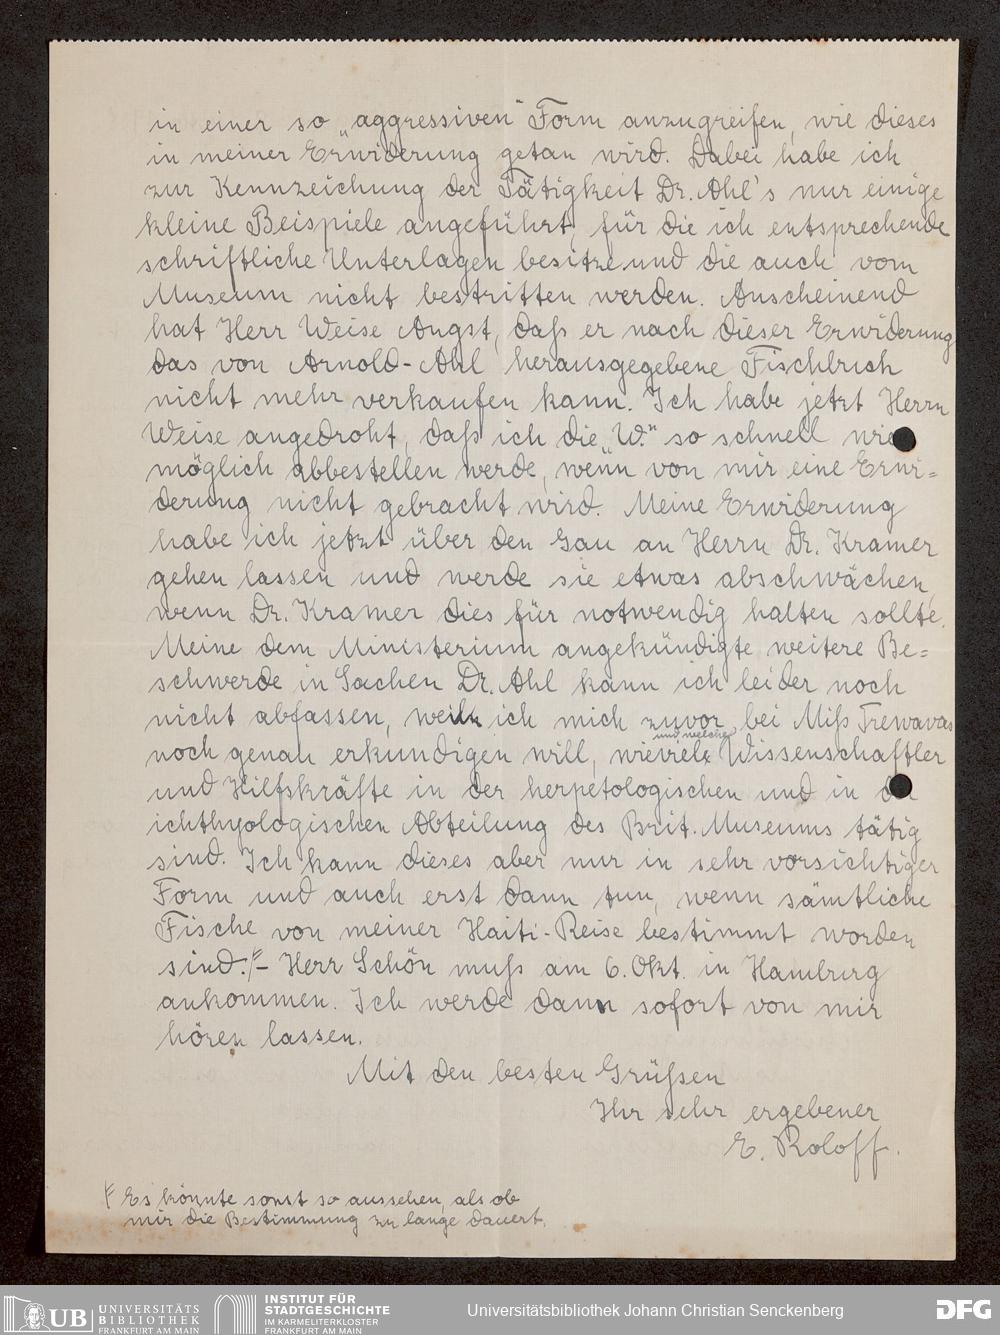 in einer so „aggressiven“ Form anzugreifen, wie dieses
in meiner Erwiderung getan wird. Dabei habe ich
zur Kennzeichung der Tätigkeit Dr. Ahl's nur einige
kleine Beispiele angeführt, für die ich entsprechende
schriftliche Unterlagen besitze und die auch vom
Museum nicht bestritten werden. Anscheinend
hat Herr Weise Angst, daß er nach dieser Erwiderung
das von Arnold-Ahl herausgegebene Fischbuch
nicht mehr verkaufen kann. Ich habe jetzt Herrn
Weise angedroht, daß ich die „W.“ so schnell wie
möglich abbestellen werde, wenn von mir eine Erwi=
derung nicht gebracht wird. Meine Erwiderung
habe ich jetzt über den Gau an Herrn Dr. Kramer
gehen lassen und werde sie etwas abschwächen,
wenn Dr. Kramer dies für notwendig halten sollte.
Meine dem Ministerium angekündigte weitere Be=
schwerde in Sachen Dr. Ahl kann ich leider noch
nicht abfassen, weil ich mich zuvor bei Miß Trewavas
und welche
noch genau erkundigen will, wieviele Wissenschaftler
und Hilfskräfte in der herpetologischen und in der
ichthyologischen Abteilung des Brit. Museums tätig
sind. Ich kann dieses aber nur in sehr vorsichtiger
Form und auch erst dann tun, wenn sämtliche
Fische von meiner Haiti-Reise bestimmt worden
sind. – Herr Schön muß am 6. Okt. in Hamburg
ankommen. Ich werde dann sofort von mir
hören lassen.
Mit den besten Grüßen
Ihr sehr ergebener
E. Roloff.
Es könnte sonst so aussehen, als ob
mir die Bestimmung zu lange dauert.
UB UNIVERSITÄTS
BIBLIOTHEK
FRANKFURT AM MAIN
INSTITUT FÜR
STADTGESCHICHTE
IM KARMELITERKLOSTER
FRANKFURT AM MAIN
Universitätsbibliothek Johann Christian Senckenberg
DFG